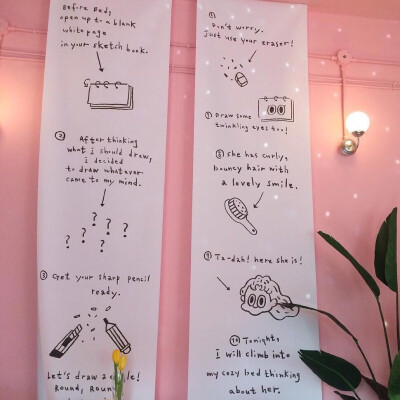 Before Bed,
open up to a blank
white page
in your sketch book.
② After thinking
what i should draw,
i decided
to draw whatever
came to my mind.
? ? ? ? ? ?
③ Get your sharp pencil
ready.
Let's draw a circle!
Round, Round
Don't worry.
Just use your eraser!
⑦ Draw some
twinkling eyes too!
⑧ she has curly,
bouncy hair with
a lovely smile.
⑨ Ta-dah! here she is!
⑩ Tonight,
i will climb into
my cozy bed thinking
about her.